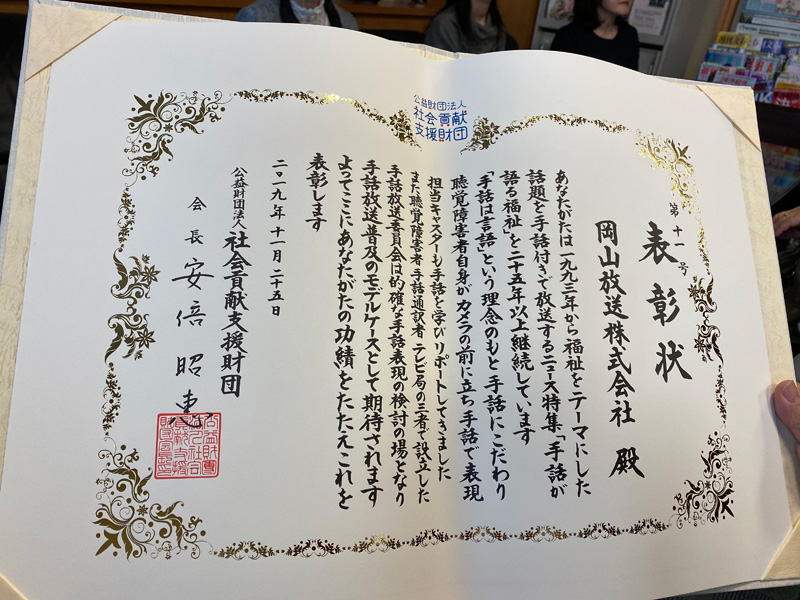 公益財団法人
社会貢献
支援財団
第十一号
表彰状
岡山放送株式会社 殿
あなたがたは一九九三年から福祉をテーマにした
話題を手話付きで放送するニュース特集「手話が
語る福祉」を二十五年以上継続しています
「手話は言語」という理念のもと手話にこだわり
聴覚障害者自身がカメラの前に立ち手話で表現
担当キャスターも手話を学びリポートしてきました
また聴覚障害者 手話通訳者 テレビ局の三者で設立した
手話放送委員会は的確な手話表現の検討の場となり
手話放送普及のモデルケースとして期待されます
よってここにあなたがたの功績をたたえこれを
表彰します
二〇一九年十一月二十五日
公益財団法人 社会貢献支援財団
会長 安倍昭恵